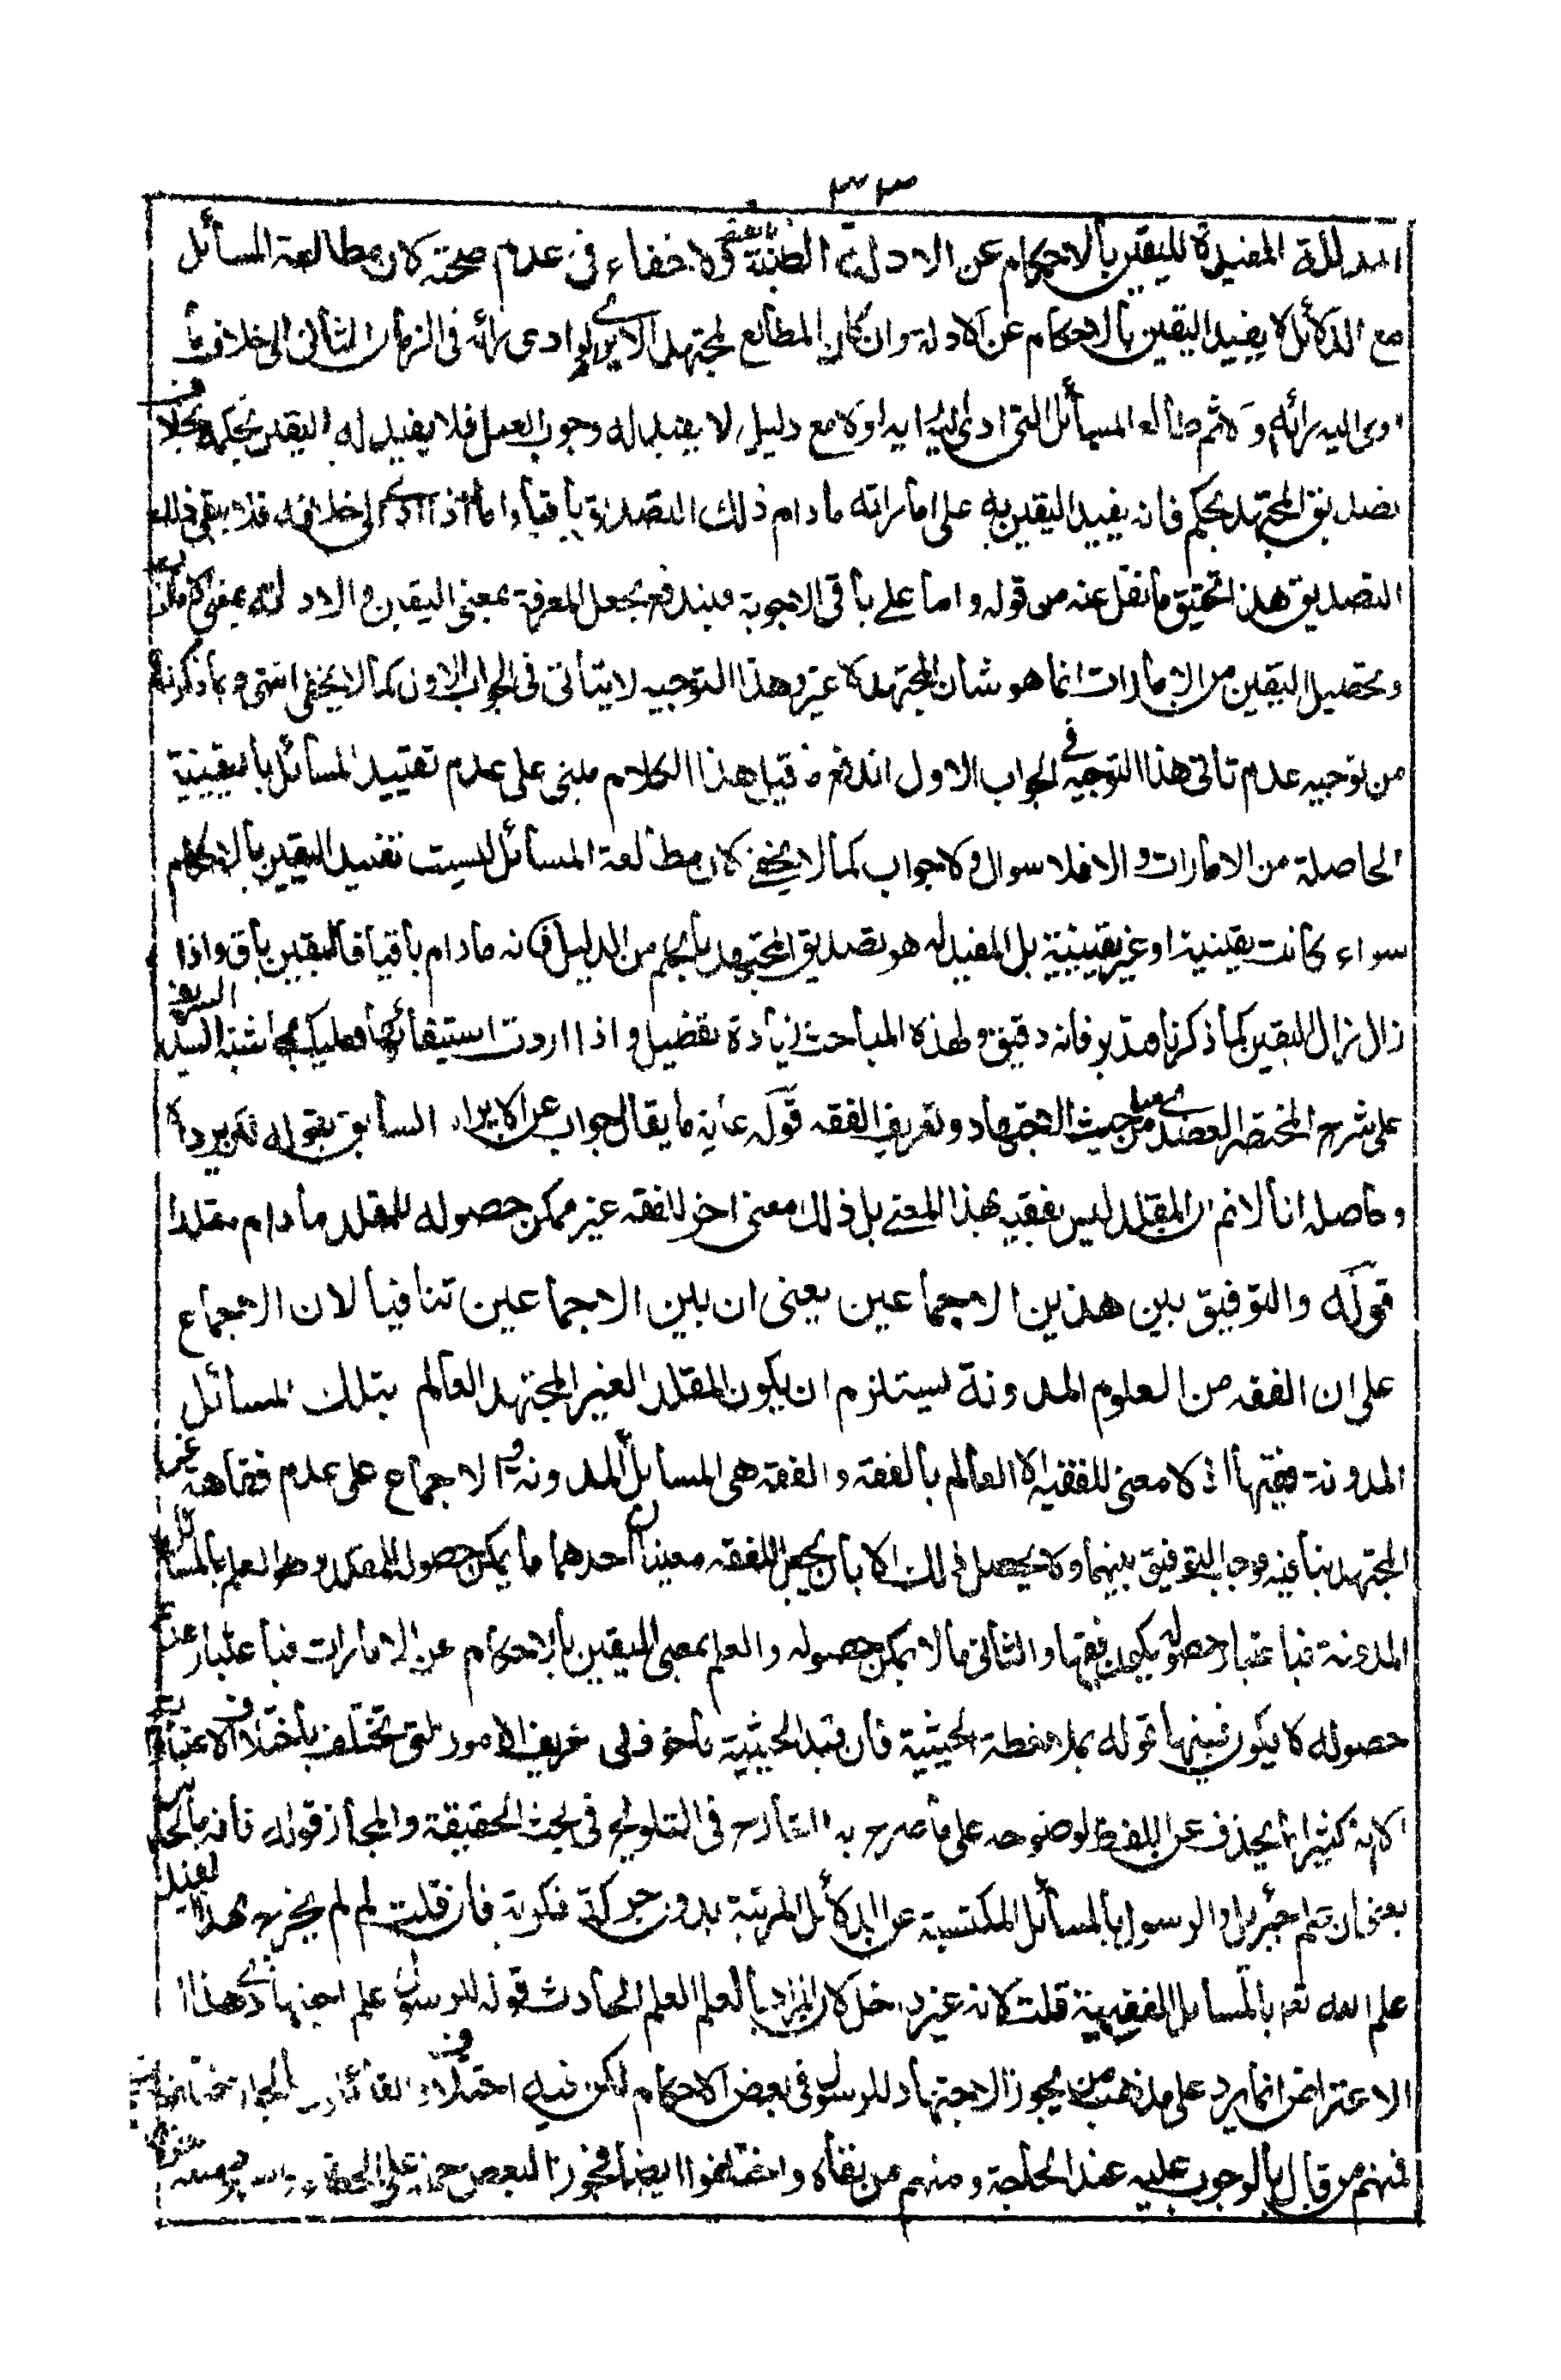 ٣٣
المدللة المفيدة لليقين بالاحكام عن الادلة الظنية ولا خفاء في عدم صحته لان مطالعة المسائل
مع الدلائل لا يفيد اليقين بالاحكام عن الادلة وان كان المطالع لمجتهد الا يرى لو ادى رائه في الزمان الثاني الى خلاف ما
ادى اليه رائه اولا ثم طالع المسائل التي ادى اليه اولا مع دليل لا يفيد له وجوب العمل فلا يفيد له اليقين بحكم بخلاف
تصديق المجتهد بحكم فانه يفيد اليقين به على اماراته ما دام ذلك التصديق باقيا واما اذا ادى الى خلافه فلا يبقى ذلك
التصديق هذا تحقيق ما نقل عنه من قوله واما على باقي الاجوبة فيندفع بجعل المعرفة بمعنى اليقين والادلة بمعنى الامارات
وتحصيل اليقين من الامارات انما هو شان المجتهد لا غير وهذا التوجيه لا يتأتى في الجواب الاول كما لا يخفى انتهى وبما ذكرنا
من توجيه عدم تاتي هذا التوجيه في الجواب الاول اندفع ما قيل هذا الكلام مبني على عدم تقييد المسائل باليقينية
الحاصلة من الامارات والا فلا سوال ولا جواب كما لا يخفى لان مطالعة المسائل ليست تفيد اليقين بالاحكام
سواء كانت يقينية او غير يقينية بل المفيد له هو تصديق المجتهد بالحكم من الدليل فانه ما دام باقيا فاليقين باق واذا
زال زال اليقين كما ذكرنا فتدبر فانه دقيق ولهذه المباحث زيادة تفصيل واذا اردت استيفائها فعليك بحاشية السيد الشريف
على شرح المختصر العضدي من حيث الاجتهاد وتعريف الفقه قوله غاية ما يقال جواب عن الايراد السابق بقوله لكن يرد
وحاصله انا لا نم ان المقلد ليس بفقيه بهذا المعنى بل ذلك معنى اخر للفقه غير ممكن حصوله للمقلد ما دام مقلدا
قوله والتوفيق بين هذين الاجماعين يعنى ان بين الاجماعين تنافيا لان الاجماع
على ان الفقه من العلوم المدونة يستلزم ان يكون المقلد الغير المجتهد العالم بتلك المسائل
المدونة فقيها اذ لا معنى للفقيه الا العالم بالفقه والفقه هي المسائل المدونة والاجماع على عدم فقاهة غير
المجتهد ينافيه فوجب التوفيق بينهما ولا يحصل ذلك الا بان يجعل للفقه معنيان احدهما ما يمكن حصوله للمقلد وهو العلم بالمسائل
المدونة فباعتبار حصوله يكون فقيها والثاني ما لا يمكن حصوله والعلم بمعنى اليقين بالاحكام عن الامارات فباعتبار عدم
حصوله لا يكون فقيها قوله بملاحظة الحيثية فان قيد الحيثية ماخوذ في تعريف الامور التي تختلف باختلاف الاعتبارات
الا انه كثيرا ما يحذف عن اللفظ لوضوحه على ما صرح به الشارح في التلويح في بحث الحقيقة والمجاز قوله فانه بالحدس
يعنى ان علم جبرئيل والرسول بالمسائل المكتسبة عن الدلائل المرتبة بدون حركة فكرية فان قلت لم لم يخرج بهذا القيد
علم الله تعم بالمسائل الفقهية قلت لانه غير داخل لان المراد بالعلم العلم الحادث قوله للرسول علم اجتهادي هذا
الاعتراض انما يرد على مذهب من يجوز الاجتهاد للرسول في بعض الاحكام لكن فيه اختلاف
فمنهم من قال بالوجوب عليه عند الحاجة ومنهم من نفاه واختلفوا ايضا فجوز البعض